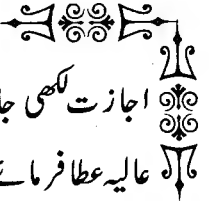 اجازت لکھی
عالیہ عطا فرمائے